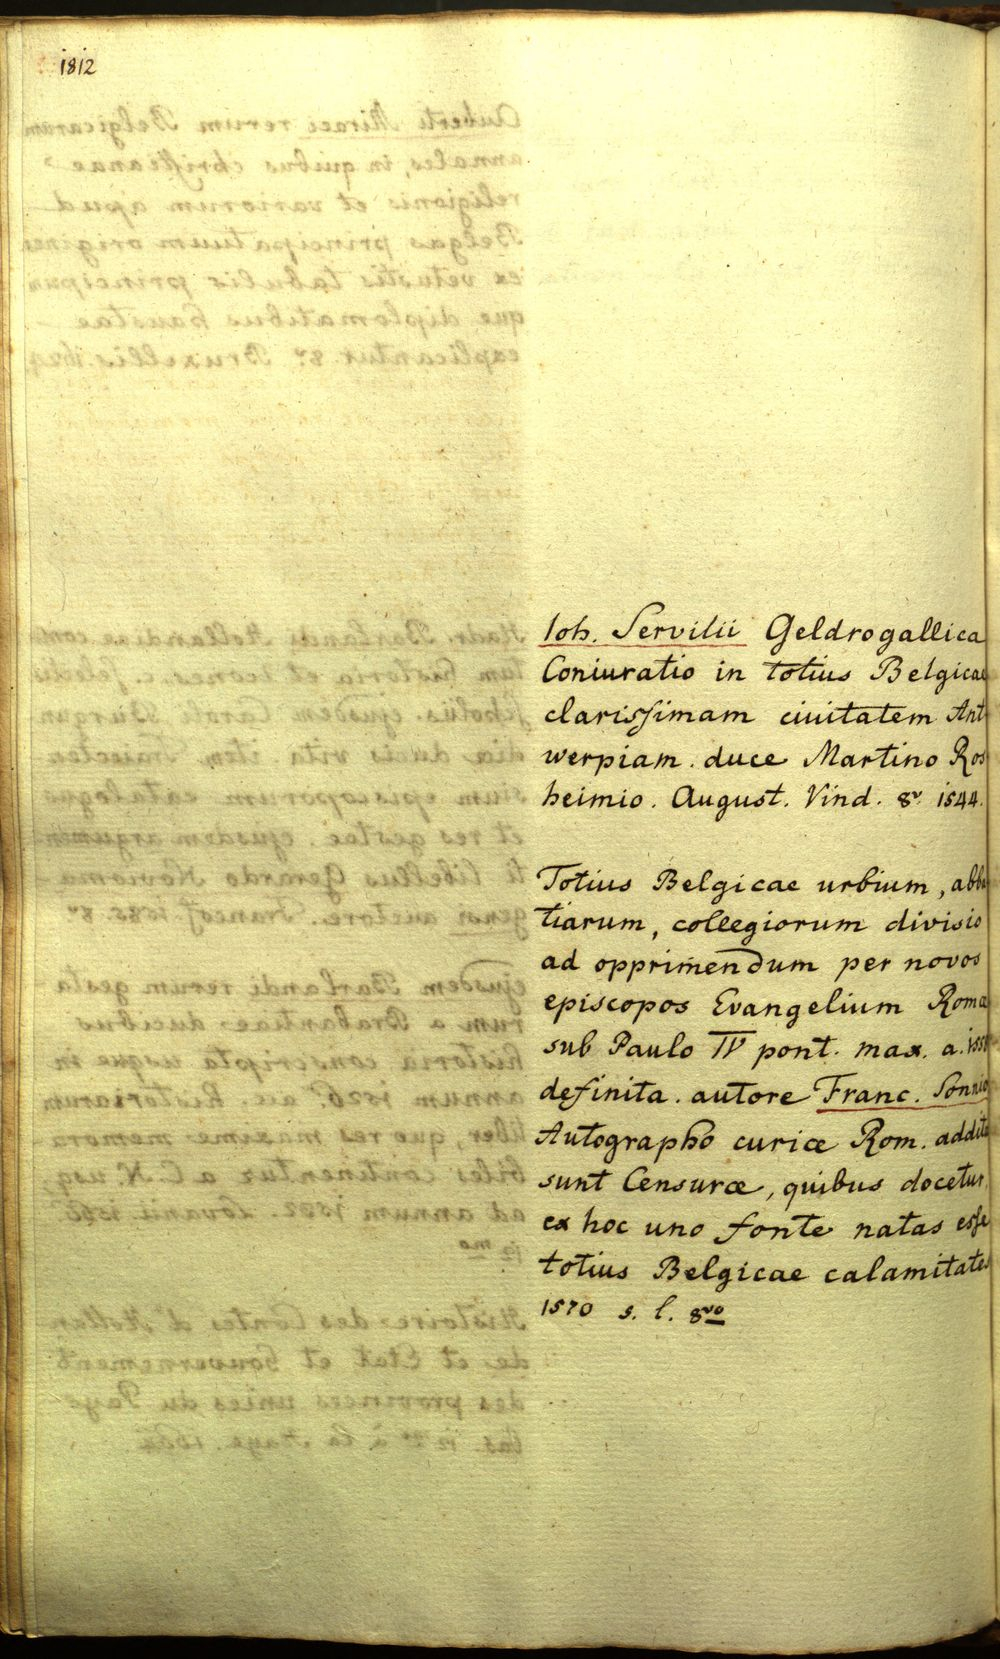 1812
Ioh. Servilii Geldrogallica
Coniuratio in totius Belgicae
clarissimam ciuitatem Ant
werpiam. duce Martino Ros
heimio. August. Vind. 8º 1544.
Totius Belgicae urbium, abba
tiarum, collegiorum divisio
ad opprimendum per novos
episcopos Evangelium Roma
sub Paulo IV pont. max. a.
definita. autore Franc. Sonnio
Autographo curiæ Rom. addita
sunt Censuræ, quibus docetur,
ex hoc uno fonte natas esse
totius Belgicae calamitates
1570 s. l. 8vo